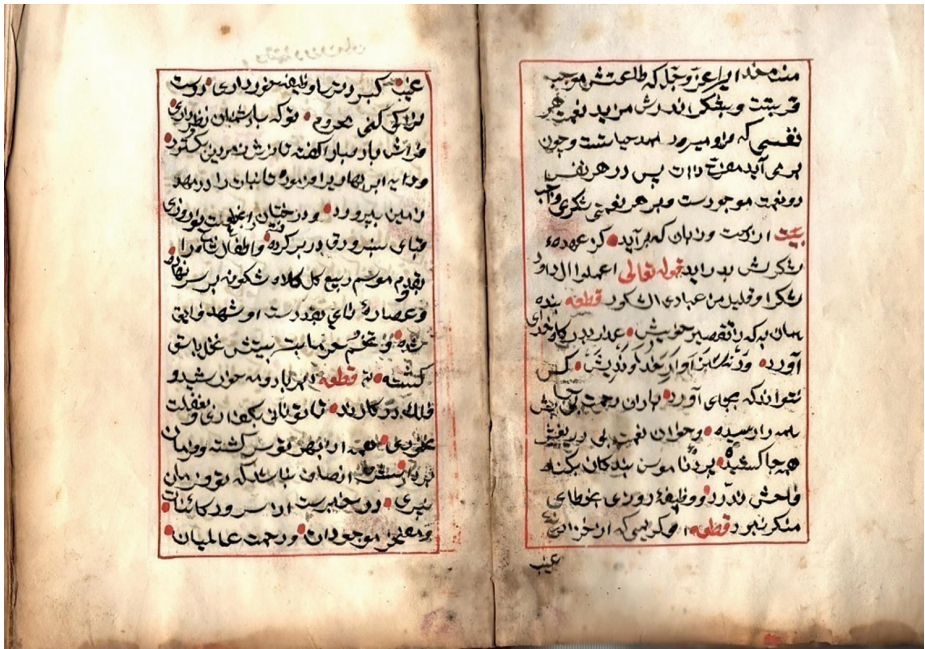 منت خدایرا عز و جل که طاعتش موجب
قربتست و بشکر اندرش مزید نعمت هر
نفسی که فرو میرود ممد حیاتست و چون
برمی آید مفرح ذات پس در هر نفس
دو نعمت موجودست و بر هر نعمتی شکری واجب
بیت از دست و زبان که برآید کز عهدهٔ
شکرش بدر آید قوله تعالی اعملوا ال داود
شکرا و قلیل من عبادی الشکور قطعه بنده
همان به که ز تقصیر خویش عذر بدرگاه خدای
آورد ورنه سزاوار خداوندیش کس
نتواند که بجای آورد باران رحمت بی
همه را رسیده و خوان نعمت بی دریغش
همه جا کشیده پردهٔ ناموس بندگان بگناه
فاحش ندرد و وظیفهٔ روزی بخطای
منکر نبرد قطعه ای کریمی که از خزانه
غیب
غیب کبر و ترسا وظیفه خور داری دوست
را کجا کنی محروم تو که با دشمنان نظر داری
فراش باد صبا را کفته تا فرش زمردین بکسترد
و دایه ابر بهاری را فرموده تا نبات را در مهد
زمین بپرورد و درختان را بخلعت نوروزی
قبای سبز ورق در بر کرده و اطفال شاخ را
بقدوم موسم ربیع کلاه شکوفه بر سر نهاده
و عصارهٔ نای بقدرت او شهد فایق
شده و تخم خرما بتربیتش نخل باسق
کشته قطعه ابر و باد و مه و خورشید و
فلک در کارند تا تو نانی بکف آری و بغفلت
نخوری همه از بهر تو سرکشته و فرمان
بردار شرط انصاف نباشد که تو فرمان
نبری در خبرست از سرور کائنات
و مفخر موجودات و رحمت عالمیان